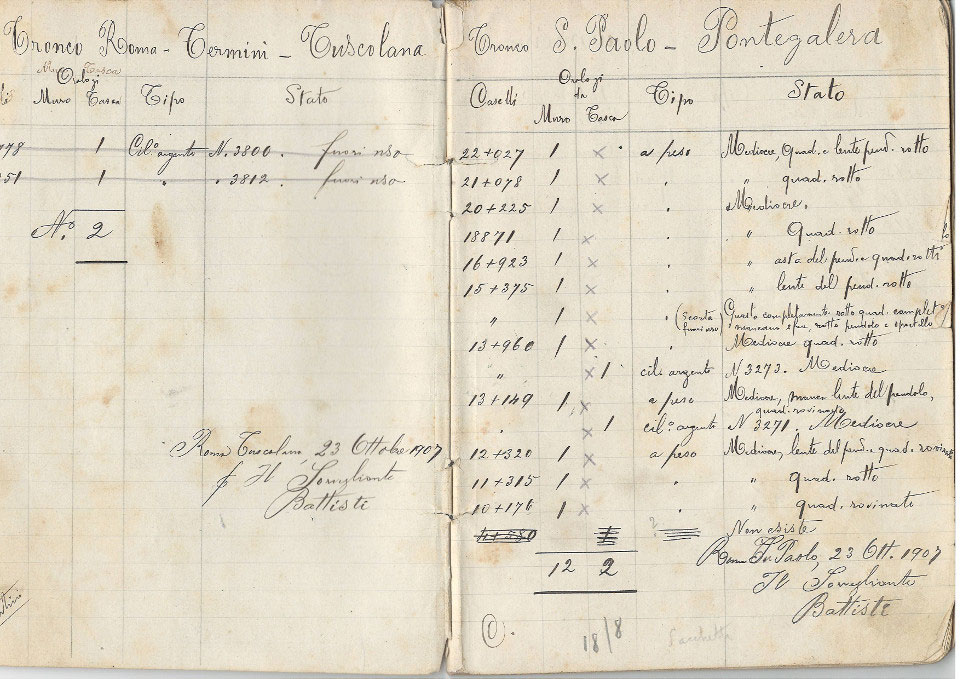 Tronco Roma - Termini - Tuscolana
Muro Tasca
Orologi
Muro Tasca Tipo Stato
778 1 Cil.º argento N. 3800. fuori uso
351 1 " " 3812. fuori uso
N.º 2
Roma Tuscolana, 23 Ottobre 1907
Il Sorvegliante
Battisti
Tronco S. Paolo - Pontegalera
Caselli Orologi da Tipo Stato
Muro Tasca
22+027 1 x a peso Mediocre, quad. e lente pend. rotto
21+078 1 x " " quad. rotto
20+225 1 x " Mediocre.
18871 1 x " " Quad. rotto
16+923 1 x " " asta del pend. e quad. rotti
15+375 1 x " " lente del pend. rotto
" 1 x " (Scorta fuori uso) Guasto completamente rotto quad. complet
mancano sfere, rotto pendolo e sportello
13+960 1 x " Mediocre quad. rotto
" x 1 cil. argento N 3273. Mediocre
13+149 1 x a peso Mediocre, manca lente del pendolo,
quad. rovinato
" x 1 cil.º argento N 3271. Mediocre
12+320 1 x a peso Mediocre, lente del pend. e quad. rovinato
11+315 1 x " " quad. rotto
10+176 1 x " " quad. rovinato
4+580 1 Non esiste
12 2
Roma S. Paolo, 23 Ott. 1907
Il Sorvegliante
Battisti
0.
18/8 Sacchetta